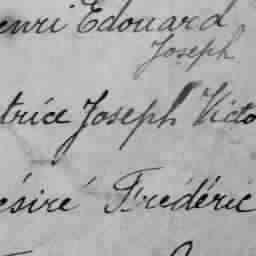 enri Edouard
Joseph
trice Joseph Victo
ésiré Frédéric